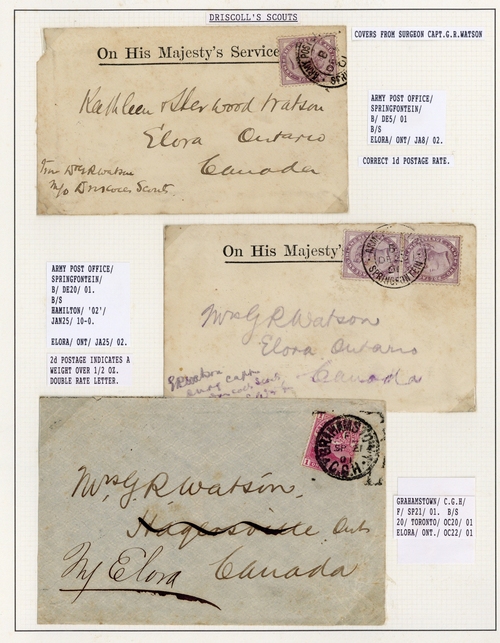 DRISCOLL'S SCOUTS
COVERS FROM SURGEON CAPT.G.R.WATSON
On His Majesty's Service
ARMY POST OFFICE/
SPRINGFONTEIN/
B/ DE5/ 01
B/S
ELORA/ ONT/ JA8/ 02.
CORRECT 1d POSTAGE RATE.
Kathleen & Sherwood Watson
Elora Ontario
Canada
from Dr G R Watson
M/O Driscolls Scouts
On His Majesty's
SPRINGFONTEIN
ARMY POST OFFICE/
SPRINGFONTEIN/
B/ DE20/ 01.
B/S
HAMILTON/ '02'/
JAN25/ 10-0.
ELORA/ ONT/ JA25/ 02.
2d POSTAGE INDICATES A
WEIGHT OVER 1/2 OZ.
DOUBLE RATE LETTER.
Mrs G R Watson
Elora Ontario
Canada
G R Watson
Surg Capt
GRAHAMSTOWN
SP 21
01
C.G.H.
Mrs G R Watson,
Hagersville Ont
Elora Canada
GRAHAMSTOWN/ C.G.H/
F/ SP21/ 01. B/S
20/ TORONTO/ OC20/ 01
ELORA/ ONT./ OC22/ 01